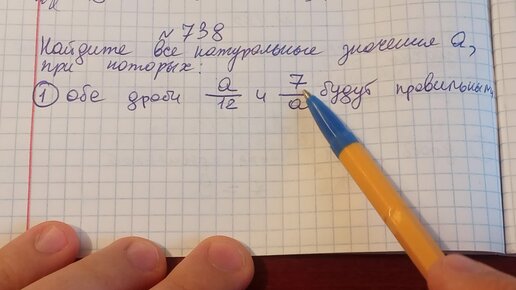 №738
Найдите все натуральные значения a,
при которых:
1 обе дроби a/12 и 7/a будут правильным